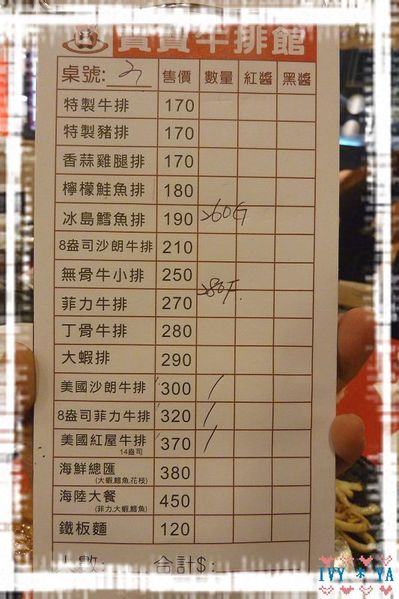 貴賓牛排館
桌號: 21 售價 數量 紅醬 黑醬
特製牛排 170
特製豬排 170
香蒜雞腿排 170
檸檬鮭魚排 180
冰島鱈魚排 190
8盎司沙朗牛排 210
無骨牛小排 250
菲力牛排 270
丁骨牛排 280
大蝦排 290
美國沙朗牛排 300 /
8盎司菲力牛排 320 /
美國紅屋牛排 370 /
14盎司
海鮮總匯 380
(大蝦,鱈魚,花枝)
海陸大餐 450
(菲力,大蝦,鱈魚)
鐵板麵 120
人數: 合計$:
IVY YA